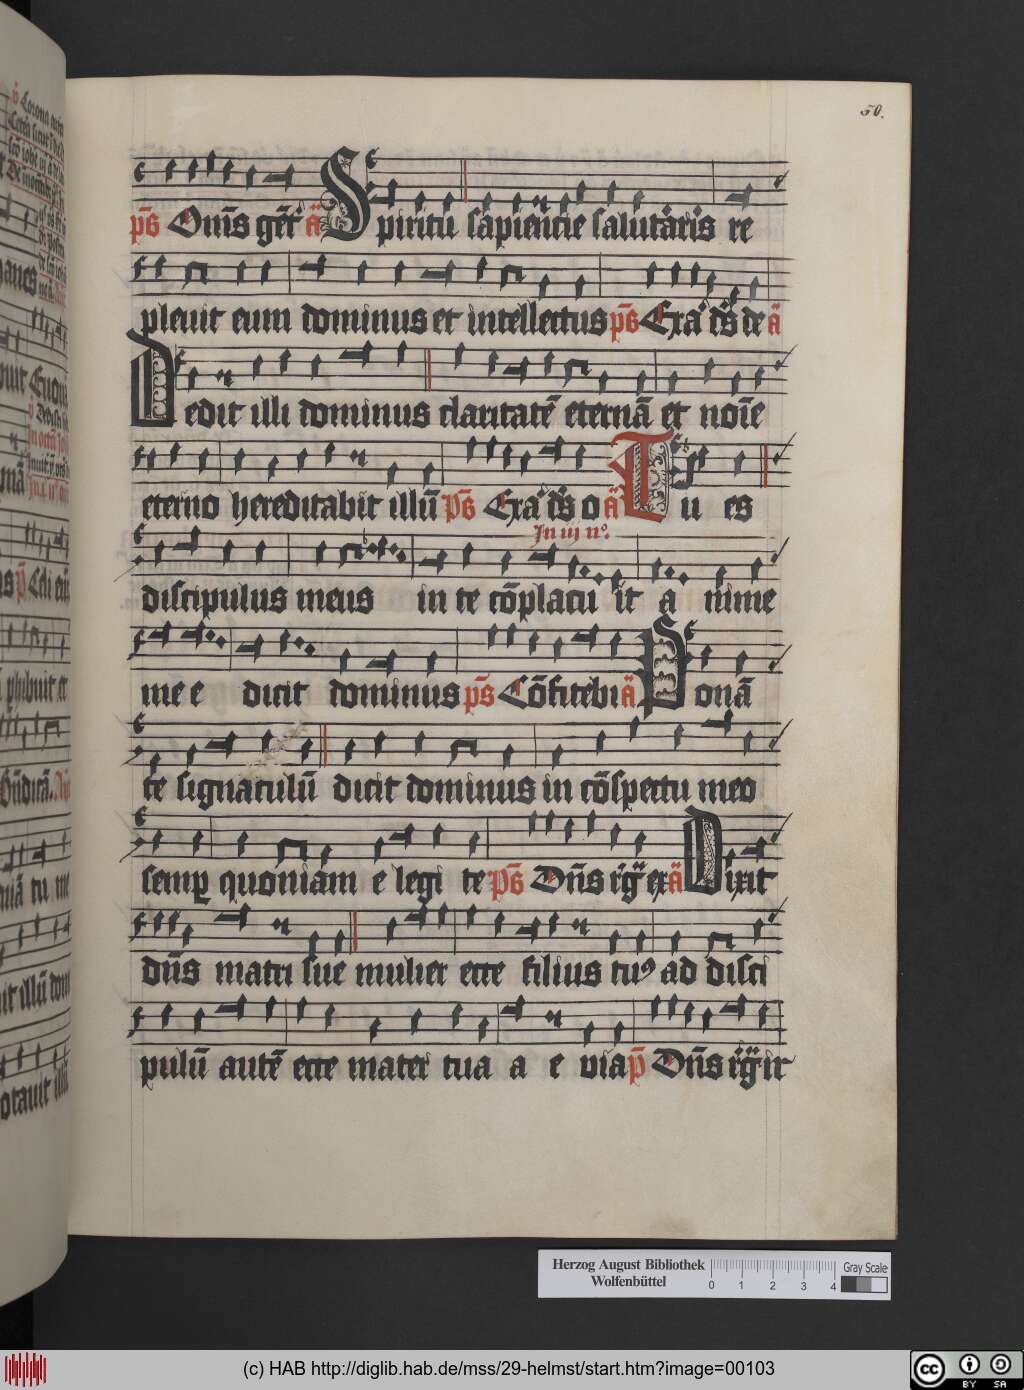 50.
pẜ Om̄s gēt ā Spiritu sapientie salutaris re
pleuit eum dominus et intellectus pẜ Exa d̄s de ā
Dedit illi dominus claritatē eternā et noīe
eterno hereditabit illū pẜ Exa d̄s o ā Tu es
In iij nº.
discipulus meus in te cōplacu it a nime
me e dicit dominus ps̄ Cōfitebi ā Ponā
te signaculū dicit dominus in cōspectu meo
semꝑ quoniam e legi te pẜ Dn̄s rḡ ex ā Dixit
dn̄s matri sue mulier ecce filius tuꝰ ad disci
pulū autē ecce mater tua a e via p̄ Dn̄s rḡ ir
Herzog August Bibliothek
Wolfenbüttel
0 1 2 3 4
Gray Scale
(c) HAB http://diglib.hab.de/mss/29-helmst/start.htm?image=00103
cc BY SA